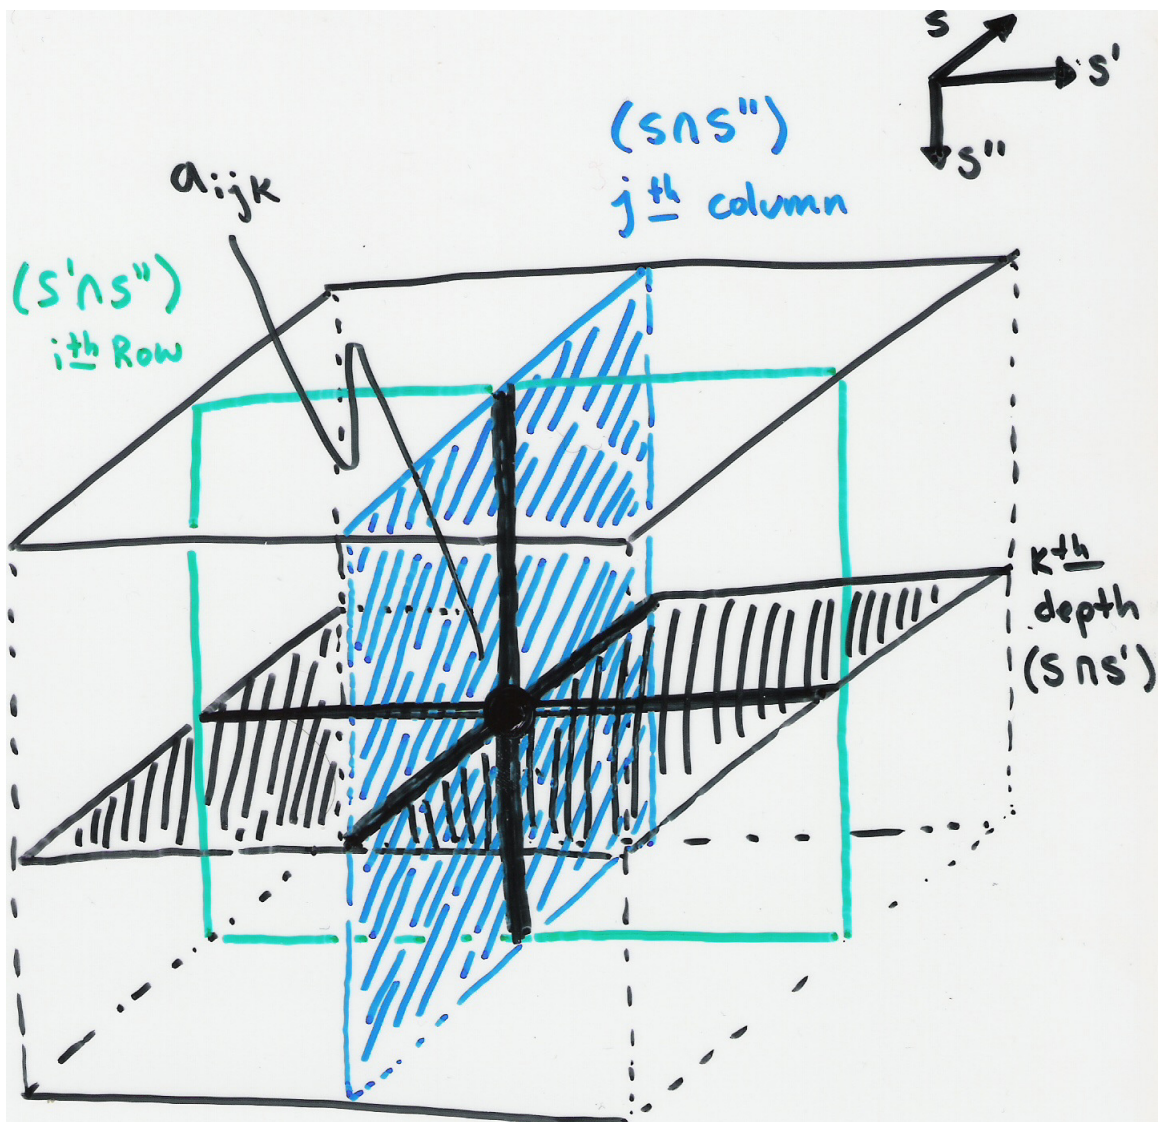 s
s'
s"
(s∩s")
jth column
aijk
(s'∩s")
ith Row
kth
depth
(s∩s')